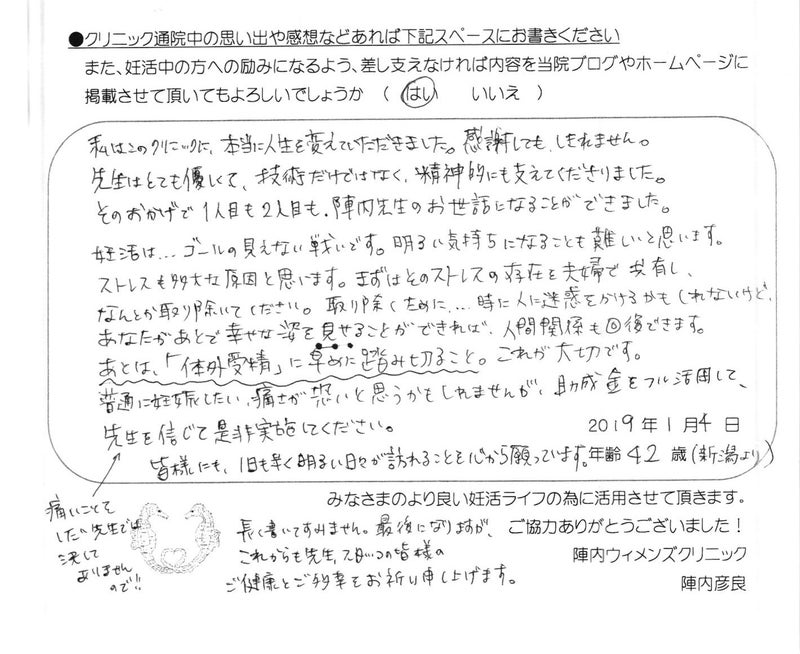 ●クリニック通院中の思い出や感想などあれば下記スペースにお書きください
また、妊活中の方への励みになるよう、差し支えなければ内容を当院ブログやホームページに
掲載させて頂いてもよろしいでしょうか （ はい　いいえ ）
私はこのクリニックに、本当に人生を変えていただきました。感謝しても、しきれません。
先生はとても優しくて、技術だけではなく、精神的にも支えてくださりました。
そのおかげで1人目も2人目も、陣内先生のお世話になることができました。
妊活は…ゴールの見えない戦いです。明るい気持ちになることも難しいと思います。
ストレスも多大な原因と思います。まずはそのストレスの存在を夫婦で共有し、
なんとか取り除いてください。取り除くために…時に人に迷惑をかけるかもしれないけど、
あなたがあとで幸せな姿を見せることができれば、人間関係も回後できます。
あとは、「体外受精」に早めに踏み切ること。これが大切です。
普通に妊娠したい、痛さが恐いと思うかもしれませんが、助成金をフル活用して、
先生を信じて是非実施してください。
2019年1月4日
皆様にも、1日も早く明るい日々が訪れることを心から願っています。
年齢42歳(新潟より)
痛いことて
したい先生では
決して
ありません
ので!!
みなさまのより良い妊活ライフの為に活用させて頂きます。
長く書いてすみません。最後になりますが、
ご協力ありがとうございました！
これからも先生、スタッフの皆様の
陣内ウィメンズクリニック
ご健康とご多幸をお祈り申し上げます。
陣内彦良